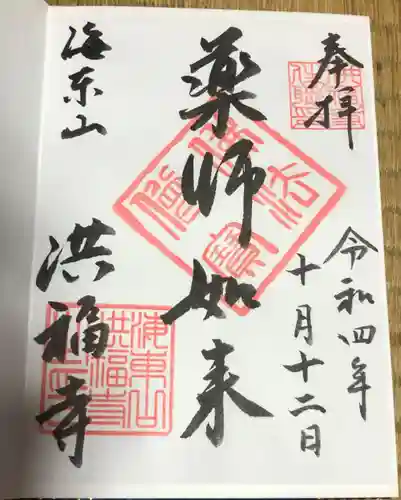 奉拝
令和四年
十月十二日
薬師如来
海東山
洪福寺
佛法僧寳
海東山
洪福寺